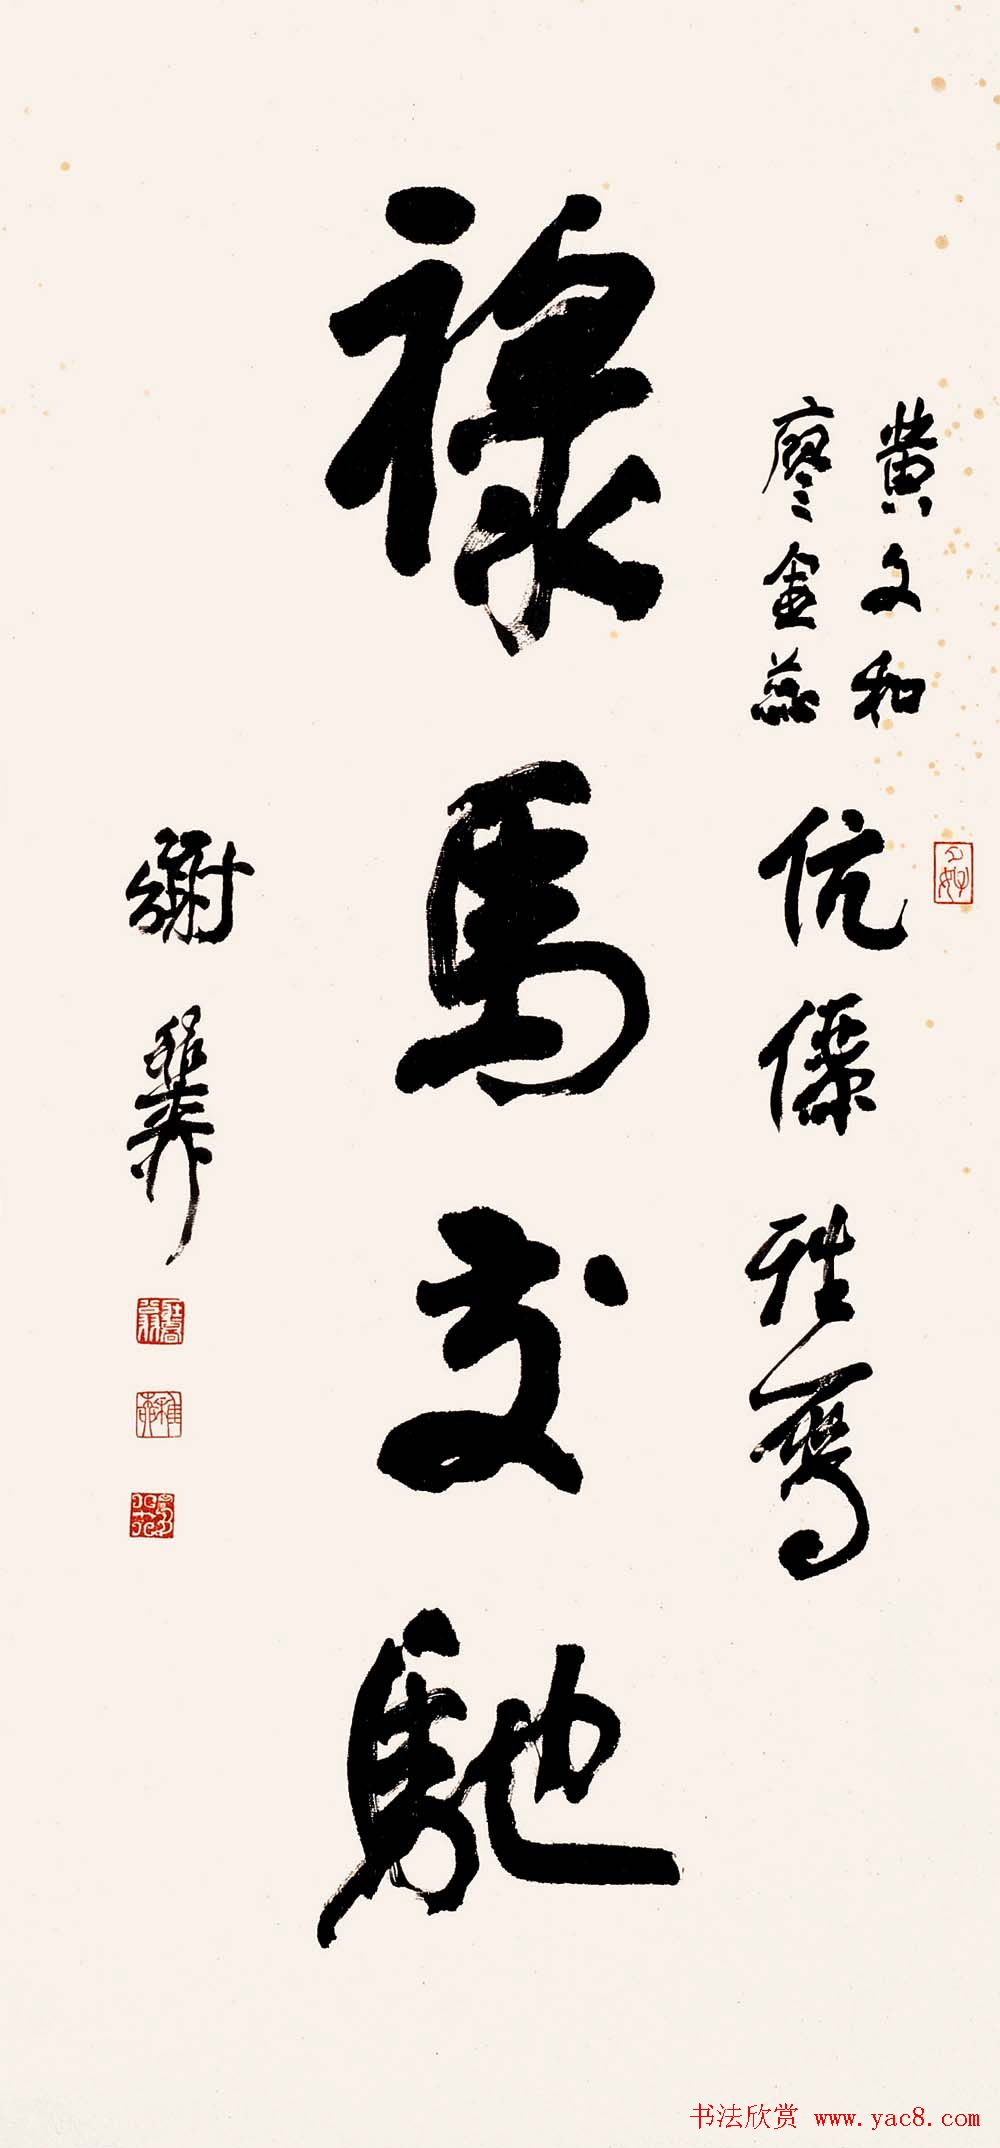 黄文和
廖金蕊
伉儷雅屬
祿馬交馳
謝稚柳
书法欣赏 www.yac8.com